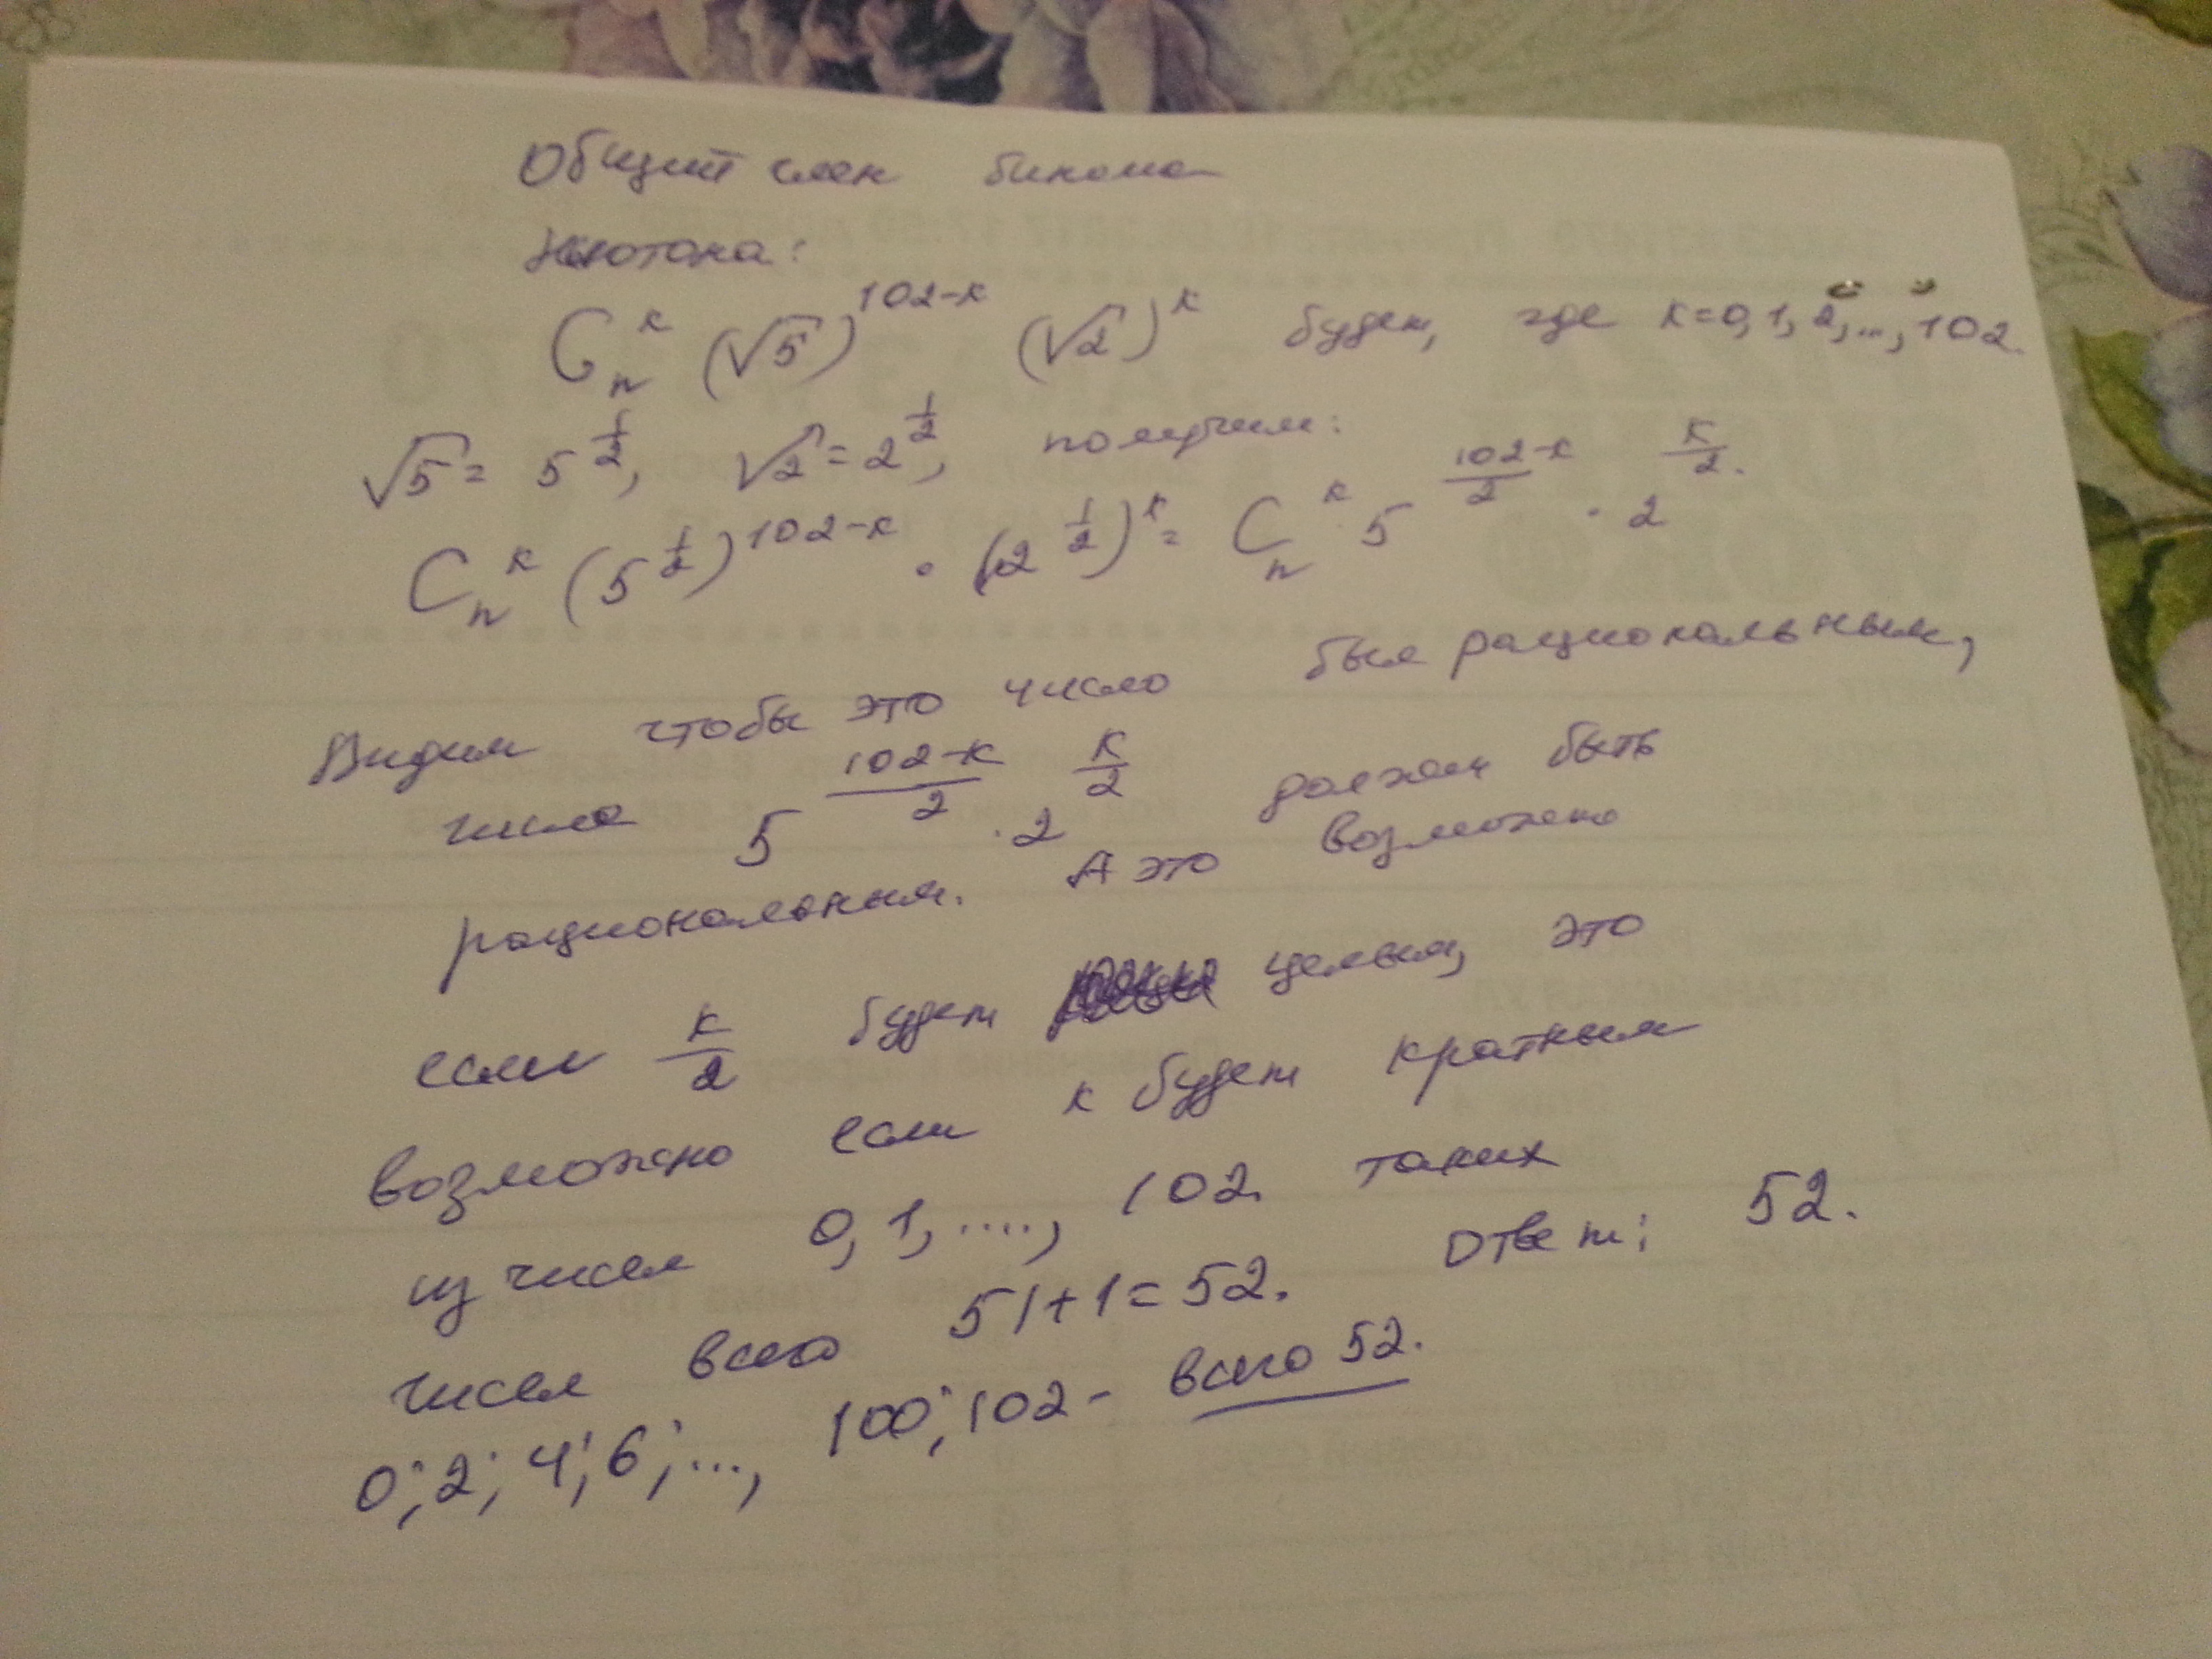 Общий член бинома
Ньютона:
C_n^к (√5)^{102-к} (√2)^к будет, где к=0,1,2,...,102.
√5 = 5^{1/2}, √2 = 2^{1/2}, получим:
C_n^к (5^{1/2})^{102-к} · (2^{1/2})^к = C_n^к 5^{(102-к)/2} · 2^{к/2}.
Видим чтобы это число был рациональным,
число 5^{(102-к)/2} · 2^{к/2} должен быть
рациональным. А это возможно
если к/2 будет целым, это
возможно если к будет кратным
из чисел 0,1,....,102 таких
чисел всего 51+1=52. Ответ: 52.
0;2;4;6;...,100;102 - всего 52.